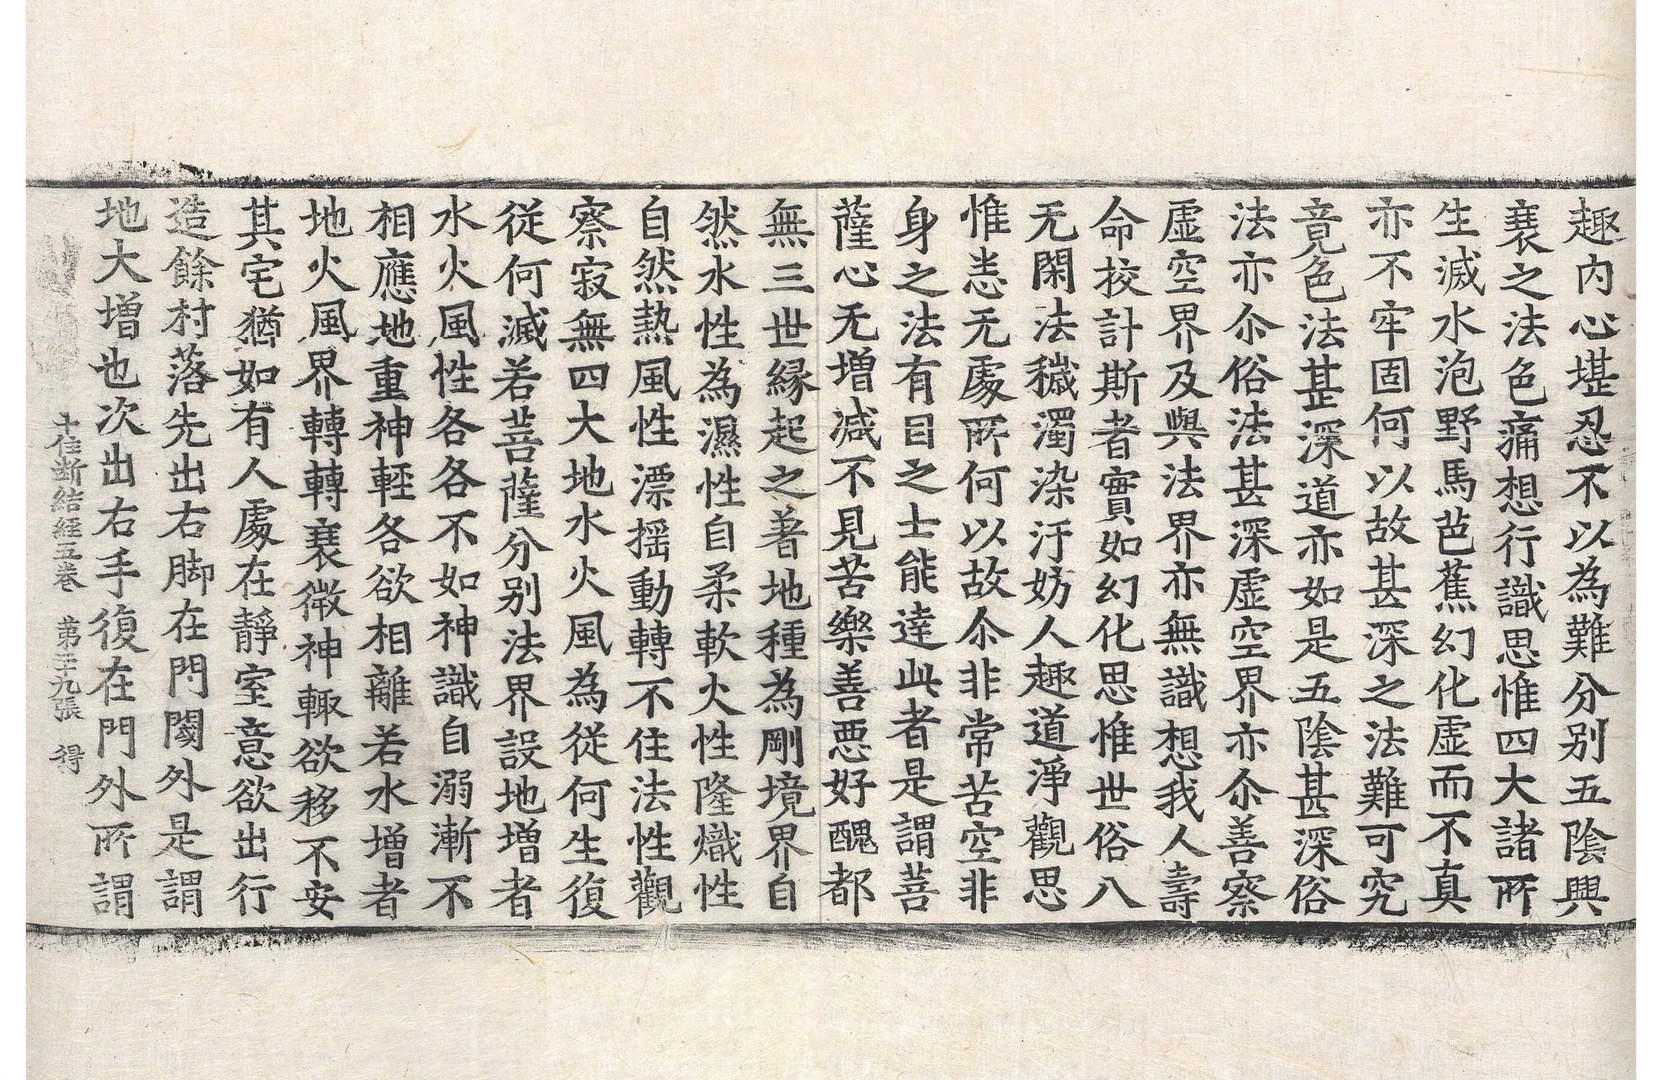 趣内心堪忍不以為難分别五陰興
衰之法色痛想行識思惟四大諸所
生滅水泡野馬芭蕉幻化虛而不真
亦不牢固何以故甚深之法難可究
竟色法甚深道亦如是五陰甚深俗
法亦尒俗法甚深虛空界亦尒善察
虛空界及與法界亦無識想我人壽
命校計斯者實如幻化思惟世俗八
无閑法穢濁染汙妨人趣道淨觀思
惟恚无處所何以故尒非常苦空非
身之法有目之士能達此者是謂菩
薩心无增减不見苦樂善悪好醜都
無三世緣起之著地種為剛境界自
然水性為濕性自柔軟火性隆熾性
自然熱風性漂搖動轉不住法性觀
察寂無四大地水火風為從何生復
從何滅若菩薩分别法界設地增者
水火風性各各不如神識自溺漸不
相應地重神輕各欲相離若水增者
地火風界轉轉衰微神輙欲移不安
其宅猶如有人處在靜室意欲出行
造餘村落先出右脚在門閫外是謂
地大增也次出右手復在門外所謂
十住断結経五卷 第三九張 得